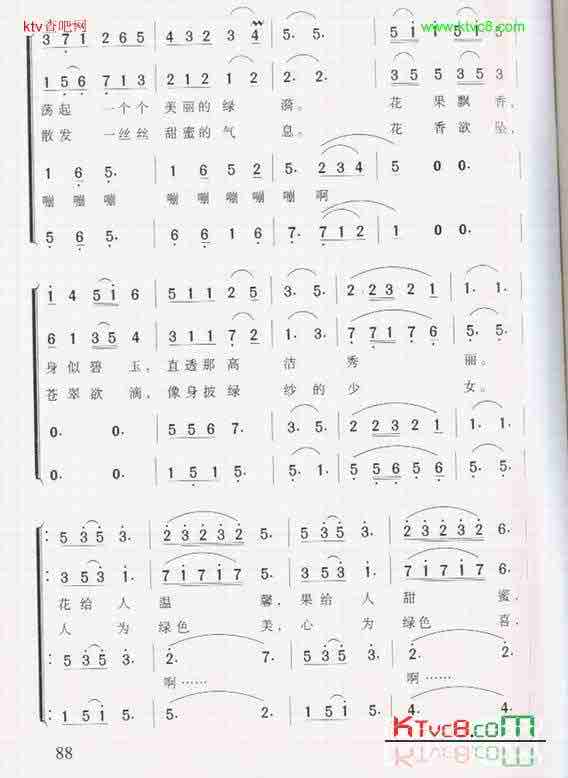 ktv查吧网
www.ktvc8.com
3 7 1 2 6 5 | 4 3 2 3 4 | 5. 5. | 5 i i 5 i 5
1 5 6 7 1 3 | 2 1 2 1 2 | 2. 2. | 3 5 5 3 5 3
荡起 一个个 美丽的绿 漪。 花 果飘香,
散发 一丝丝 甜蜜的气 息。 花 香欲坠,
1 6 5. | 1 6 5 2 | 5. 2 3 4 | 5 0 0.
嘣嘣嘣 嘣嘣嘣嘣嘣啊
5 6 5. | 6 6 1 6 | 7. 7 1 2 | 1 0 0.
i 4 5 i 6 | 5 1 1 2 5 | 3. 5. | 2 2 3 2 1 | 1. 1.
6 1 3 5 4 | 3 1 1 7 2 | 1. 3. | 7 7 1 7 6 | 5. 5.
身似碧 玉,直透那高 洁 秀 丽。
苍翠欲 滴,像身披绿 纱的少 女。
0. 0. | 5 5 6 7. | 3. 5. | 2 2 3 2 1 | 1. 1.
0. 0. | 1 5 1 5. | 5. 1. | 5 5 6 5 6 | 5. 5.
: 5 3 5 3. | 2 3 2 3 2 5. | 5 3 5 3. | 2 3 2 3 2 6.
: 3 5 3 1. | 7 i 7 i 7 5. | 3 5 3 i. | 7 i 7 i 7 6.
花给人 温 馨,果给人 甜 蜜,
人 为绿色 美,心 为绿色 喜,
: 5 3 5 3. | 2. 7. | 5 3 5 3. | 2. 2.
啊…… 啊……
: 1 5 1 5. | 5. 2. | 1 5 1 5. | 4. 4.
KTvc8.com
88